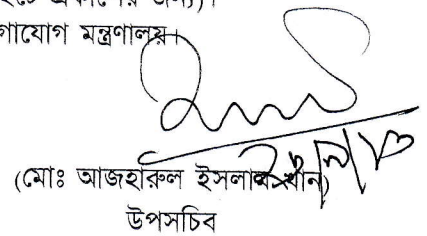 প্রকাশের জন্য)।
যোগাযোগ মন্ত্রণালয়।
(মোঃ আজহারুল ইসলাম খান)
উপসচিব